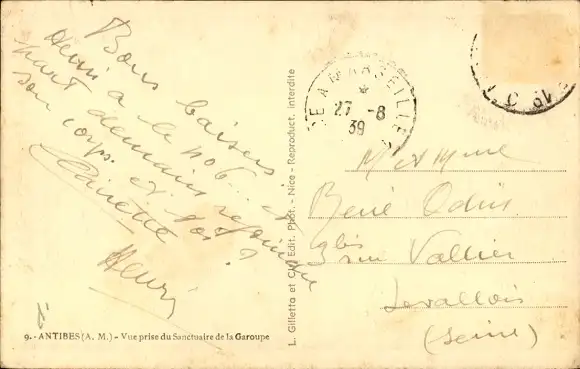 Bons baisers
Henri a le no 6.. et
part demain rejoindre
son corps. et toi ?
Ginette
Henri
9. - ANTIBES (A. M.) - Vue prise du Sanctuaire de la Garoupe
L. Gilletta et Cie Edit. Phot. - Nice - Reproduct. interdite
MARSEILLE
27 -8
39
M et Mme
René
rue Vallier
Levallois
(Seine)